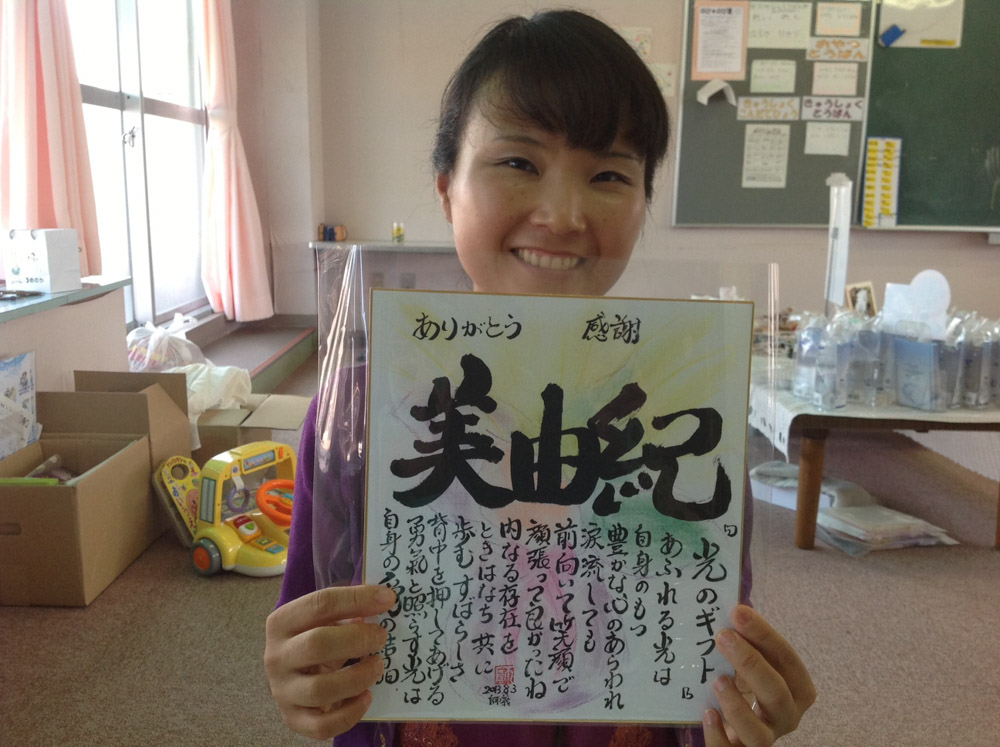 ありがとう
感謝
美由紀
『光のギフト』
あふれる光は
自身のもつ
豊かな心のあらわれ
涙流しても
前向いて笑顔で
頑張って良かったね
内なる存在を
ときはなち 共に
歩む すばらしさ
背中を押してあげる
勇氣と照らす光は
自身の
きゅうしょく
こんだてひょう
きゅうしょく
とうばん
おやつ
とうばん